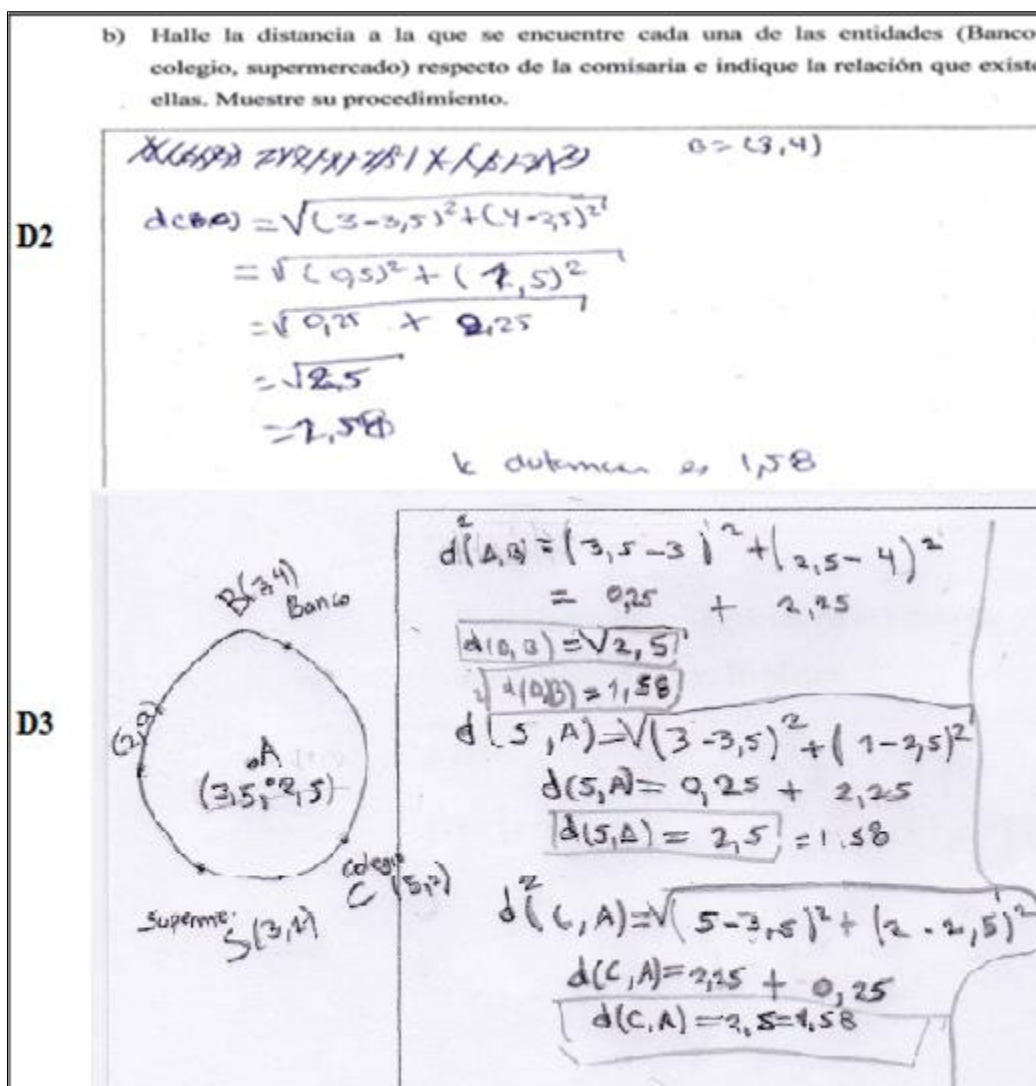 b) Halle la distancia a la que se encuentre cada una de las entidades (Banco
colegio, supermercado) respecto de la comisaria e indique la relación que existe
ellas. Muestre su procedimiento.
B = (3,4)
D2
= √(3-3,5)²+(4-2,5)²
= √(0,5)² + (1,5)²
= √0,25 + 2,25
= √2,5
= 1,58
es 1,58
D3
B(3,4)
Banco
A
(3,5, 2,5)
colegio
C (5,2)
Superme.
S(3,1)
d²(A,B) = (3,5-3)² + (2,5-4)²
= 0,25 + 2,25
= √2,5
= 1,58
d(S,A)=√(3-3,5)²+(1-2,5)²
d(S,A)= 0,25 + 2,25
d(S,A) = 2,5 = 1.58
d²(C,A)=√(5-3,5)²+(2-2,5)²
d(C,A)=2,25 + 0,25
d(C,A)=2,5=1.58